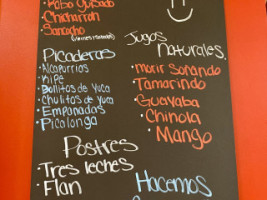 • Pabo Guisado
• Chicharron
Sancocho
Picaderas
• Alcapurrias
• Kipe
• Bollitos de Yuca
• Chulitos de yuca
• Empanadas
• Picalonga
Postres
• Tres leches
• Flan
Jugos
Naturales
• Morir Soñando
• Tamarindo
• Guayaba
• Chinola
• Mango
Hacemos